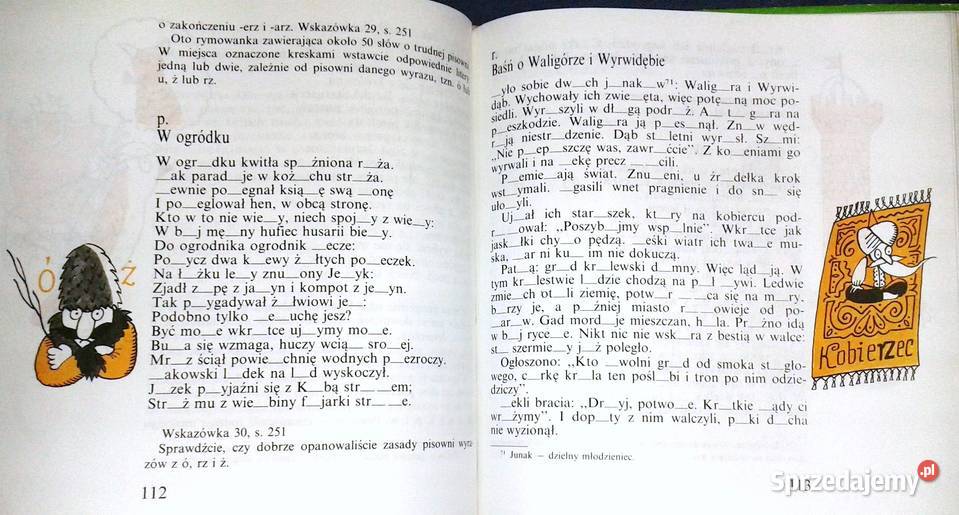 o zakończeniu -erz i -arz. Wskazówka 29, s. 251
Oto rymowanka zawierająca około 50 słów o trudnej pisowni
W miejsca oznaczone kreskami wstawcie odpowiednie litery
jedną lub dwie, zależnie od pisowni danego wyrazu, tzn. ó
u, ż lub rz.
p.
W ogródku
W ogr_dku kwitła sp_źniona r_ża.
_ak parad_je w koż_chu str_ża.
_ewnie po_egnał ksią_ę swą _onę
I po_eglował hen, w obcą stronę.
Kto w to nie wie_y, niech spoj_y z wie_y:
W b_j mę_ny hufiec husarii bie_y.
Do ogrodnika ogrodnik _ecze:
Po_ycz dwa k_ewy ż_łtych po_eczek.
Na ł_żku le_y znu_ony Je_yk:
Zjadł z_pę z ja_yn i kompot z je_yn.
Tak p_ygadywał ż_łwiowi je_:
Podobno tylko _e_uchę jesz?
Być mo_e wkr_tce uj_ymy mo_e.
Bu_a się wzmaga, huczy wcią_ sro_ej.
Mr_z ściął powie_chnię wodnych p_ezroczy.
_akowski l_dek na l_d wyskoczył.
J_zek p_yjaźni się z K_bą str_ _em;
Str_ż mu z wie_biny f_jarki str_ _e.
Wskazówka 30, s. 251
Sprawdźcie, czy dobrze opanowaliście zasady pisowni wyra
zów z ó, rz i ż.
112
r.
Baśń o Waligórze i Wyrwidębie
_yło sobie dw_ch j_nak_w⁷¹: Walig_ra i Wyrwi-
dąb. Wychowały ich zwie_ęta, więc potę_ną moc po-
siedli. Wyr_szyli w dł_gą podr_ż. A_ t_ g_ra na
p_eszkodzie. Walig_ra ją p_es_nął. Zn_w węd-
r_ją niestr_dzenie. Dąb st_letni wyr_sł. Sz_mi:
„Nie p_ep_szczę was, zawr_ćcie”. Z ko_eniami go
wyrwali i na _ekę precz _ _cili.
P_emie_ają świat. Znu_eni, u źr_dełka krok
wst_ymali. _gasili wnet pragnienie i do sn_ się
uło_yli.
Uj_ał ich star_szek, kt_ry na kobiercu pod-
r_ _ował: „Poszyb_jmy wsp_lnie”. Wkr_tce jak
jask_łki chy_o pędzą. _eśki wiatr ich twa_e mu-
ska, _ar ni ku_ im nie dokuczą.
Pat_ą: gr_d kr_lewski d_mny. Więc ląd_ją. W
tym kr_lestwie l_dzie chodzą na p_ł _ywi. Ledwie
zmie_ch ot_li ziemię, potw_r _ _ca się na m_ry,
b_rzy je, a p_źniej miasto r_ _owieje od po-
_ar_w. Gad mord_je mieszczan, h_la. Pr_żno idą
w b_j ryce_e. Nikt nic nie wsk_ra z bestią w walce:
st_ szermie_y j_ż poległo.
Ogłoszono: „Kto _wolni gr_d od smoka st_gło-
wego, c_rkę kr_la ten pośl_bi i tron po nim odzie-
dziczy”.
_ekli bracia: „Dr_yj, potwo_e. Kr_tkie _ądy ci
wr_żymy”. I dop_ty z nim walczyli, p_ki d_cha
nie wyzionął.
⁷¹ Junak – dzielny młodzieniec.
113
Ó Ż
Kobierzec
Sprzedajemy.pl